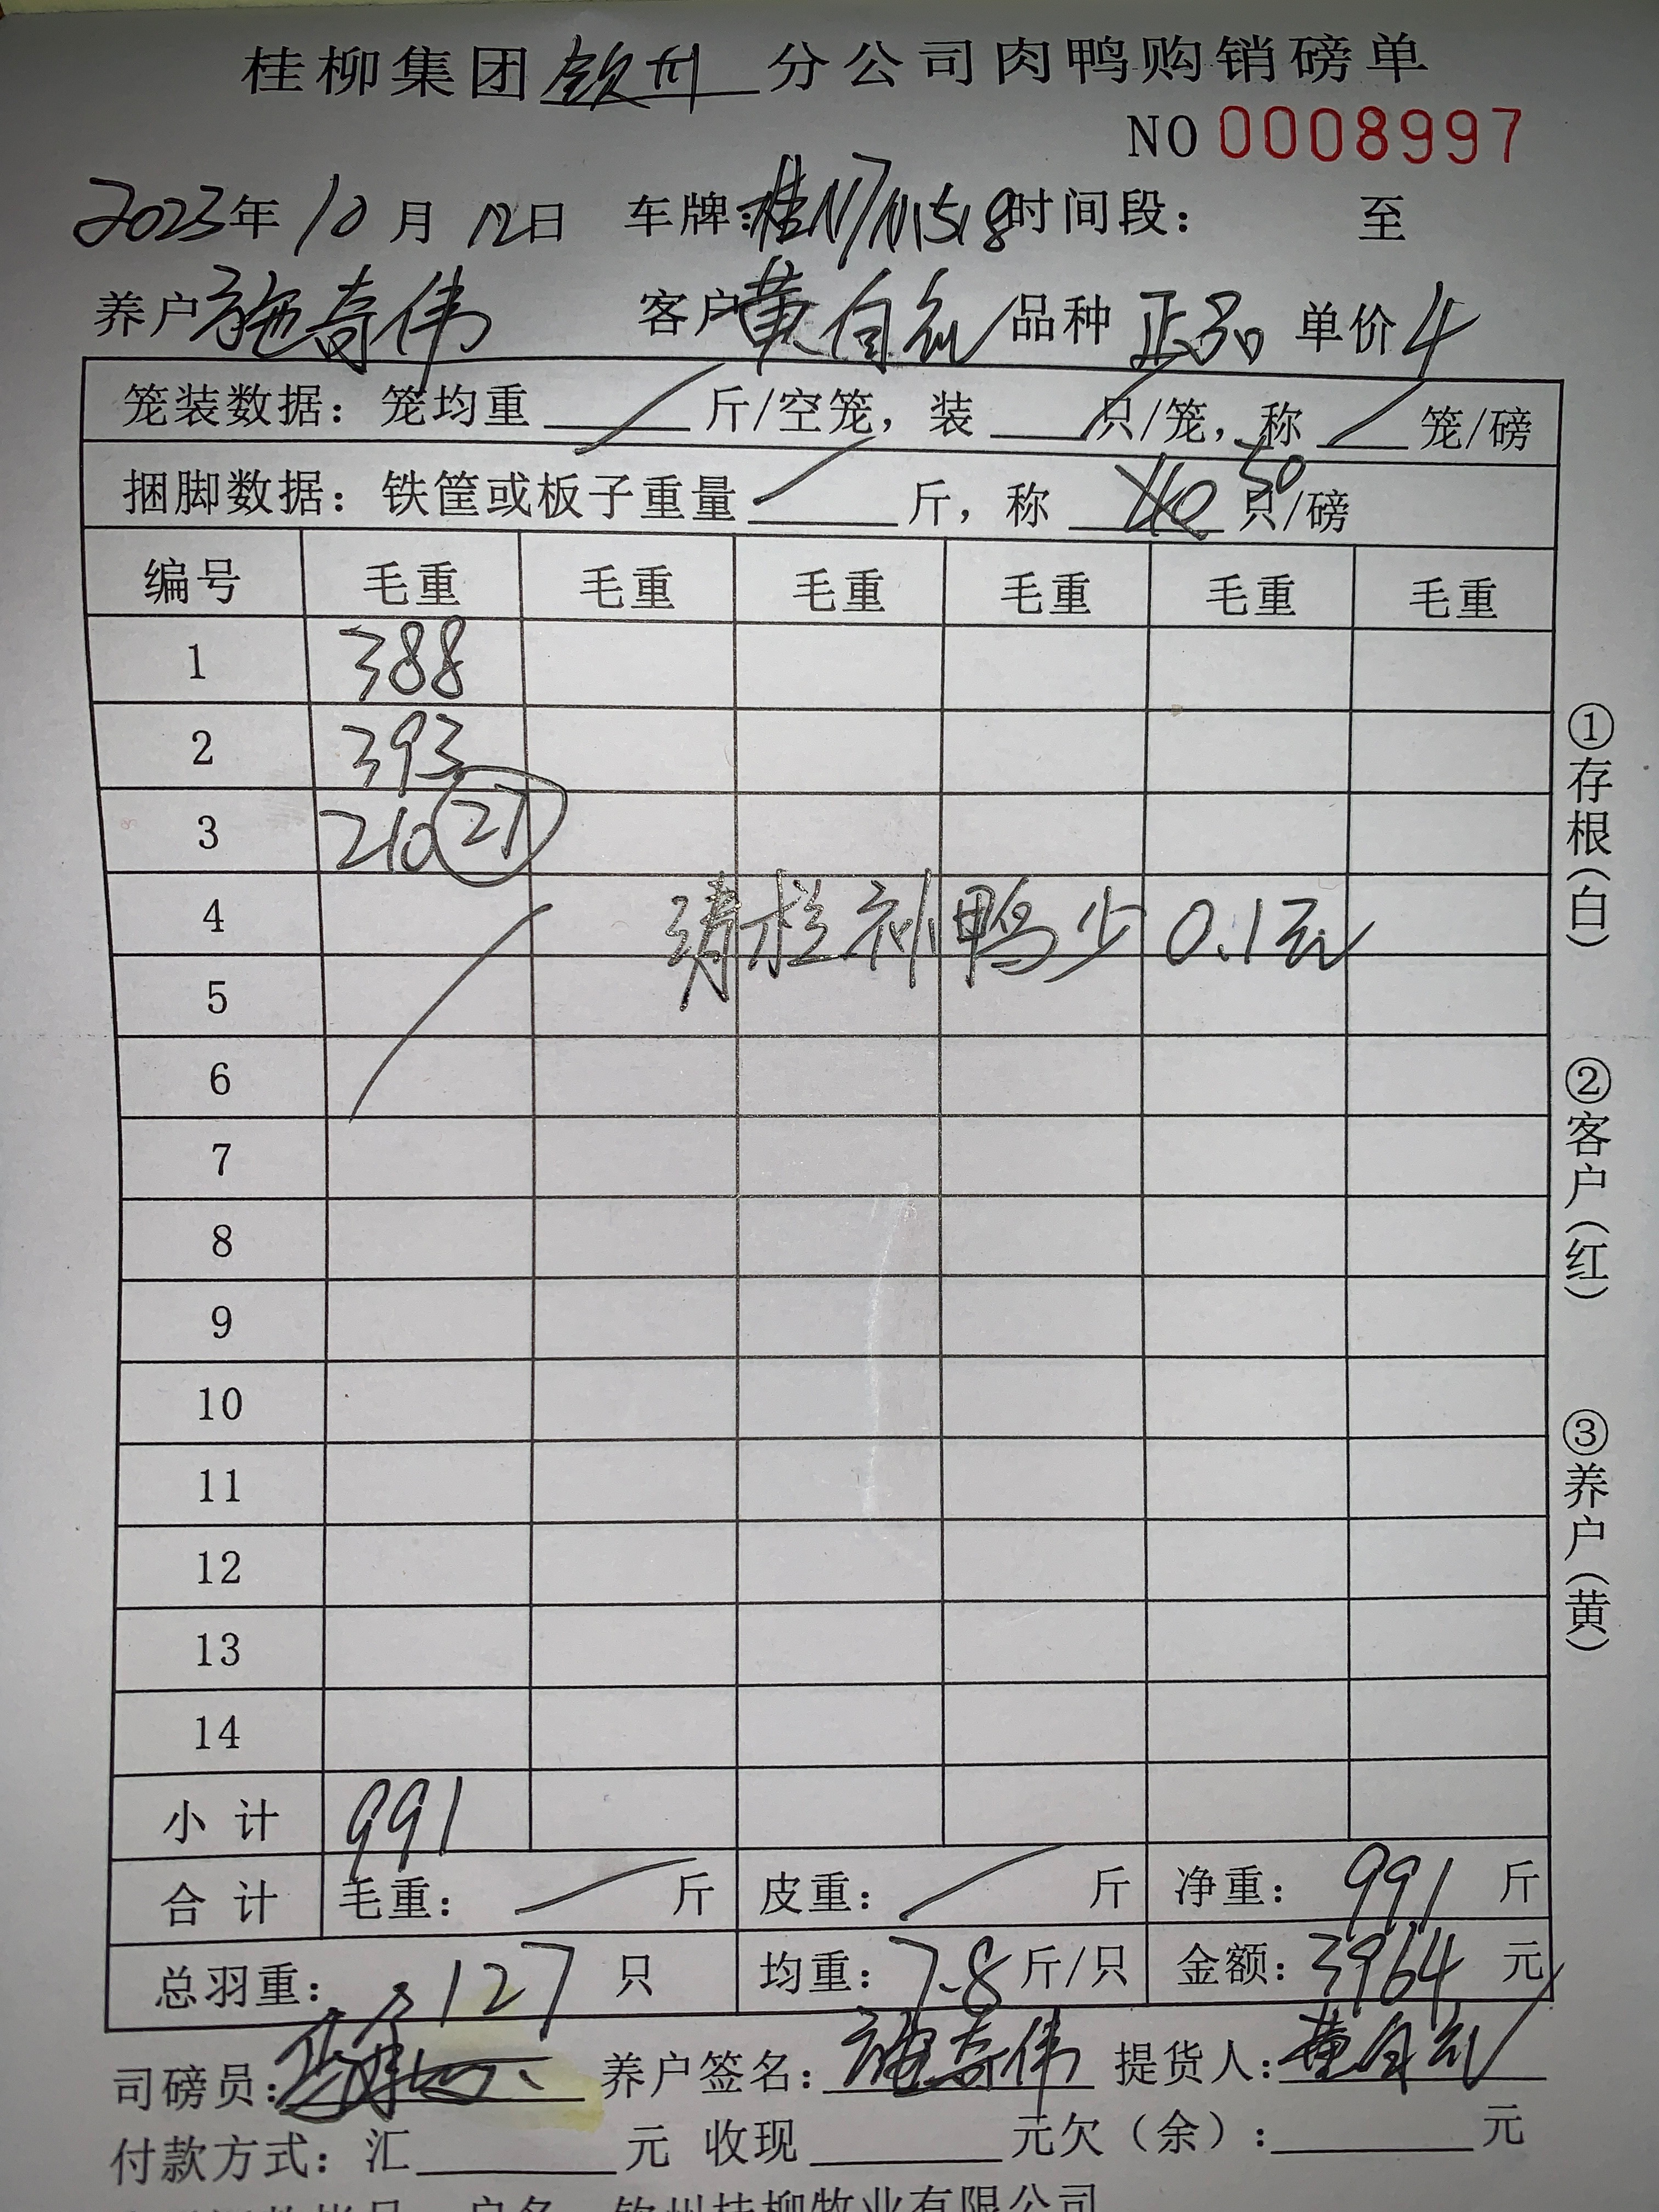 桂柳集团钦州分公司肉鸭购销磅单
NO 0008997
2023年10月12日 车牌: 时间段： 至
养户施奇伟 客户黄自 品种 正品 单价4
笼装数据：笼均重 斤/空笼，装 只/笼，称 笼/磅
捆脚数据：铁筐或板子重量 斤，称 40 50 只/磅
编号 毛重 毛重 毛重 毛重 毛重 毛重
1 388
2 393
3 210 27
4 清栏补鸭少0.1元
5
6
7
8
9
10
11
12
13
14
小计 991
合计 毛重： 斤 皮重： 斤 净重： 991 斤
总羽重： 127 只 均重：7.8斤/只 金额：3964 元
司磅员: 养户签名：施奇伟 提货人：黄自
付款方式：汇 元 收现 元欠（余）： 元
户名 钦州桂柳牧业有限公司
①存根（白）
②客户（红）
③养户（黄）